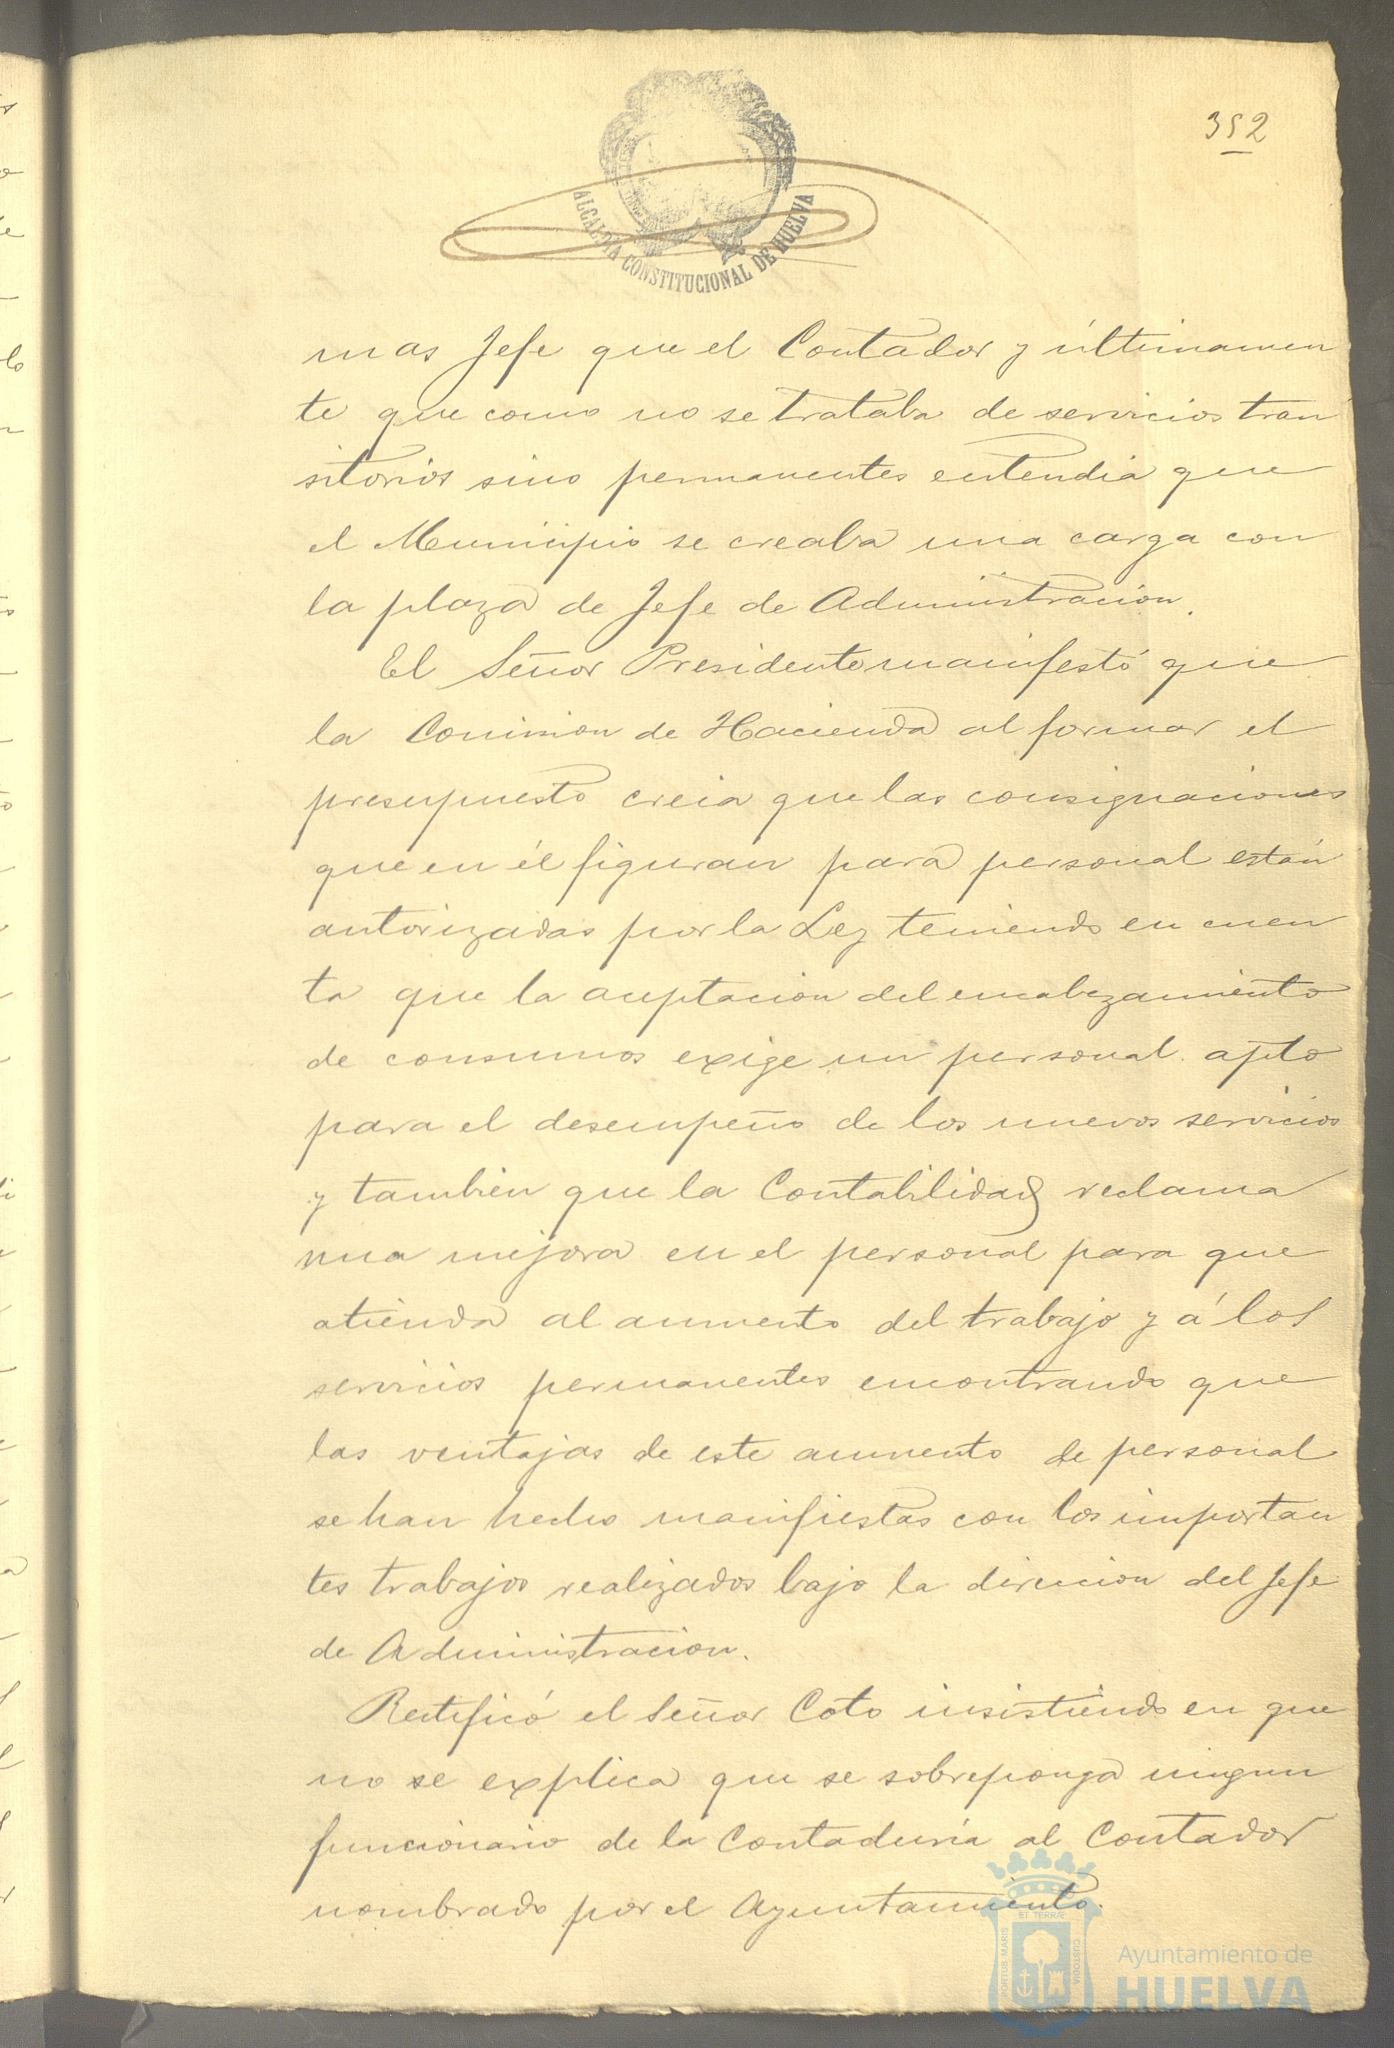 352
ALCALDIA CONSTITUCIONAL DE HUELVA
mas Jefe que el Contador y últimamen
te que como no se trataba de servicios tran
sitorios sino permanentes entendia que
el Municipio se creaba una carga con
la plaza de Jefe de Administracion.
El Señor Presidente manifestó que
la Comision de Hacienda al formar el
presupuesto creia que las consignaciones
que en él figuran para personal están
autorizadas por la Ley teniendo en cuen
ta que la aceptacion del encabezamiento
de consumos exige un personal apto
para el desempeño de los nuevos servicios
y tambien que la Contabilidad reclama
una mejora en el personal para que
atienda al aumento del trabajo y á los
servicios permanentes encontrando que
las ventajas de este aumento de personal
se han hecho manifiestas con los importan
tes trabajos realizados bajo la direccion del Jefe
de Administracion.
Rectificó el Señor Coto insistiendo en que
no se explica que se sobreponga ningun
funcionario de la Contaduría al Contador
nombrado por el Ayuntamiento.
PORTUS MARIS
ET TERRÆ
CUSTODIA
Ayuntamiento de
HUELVA